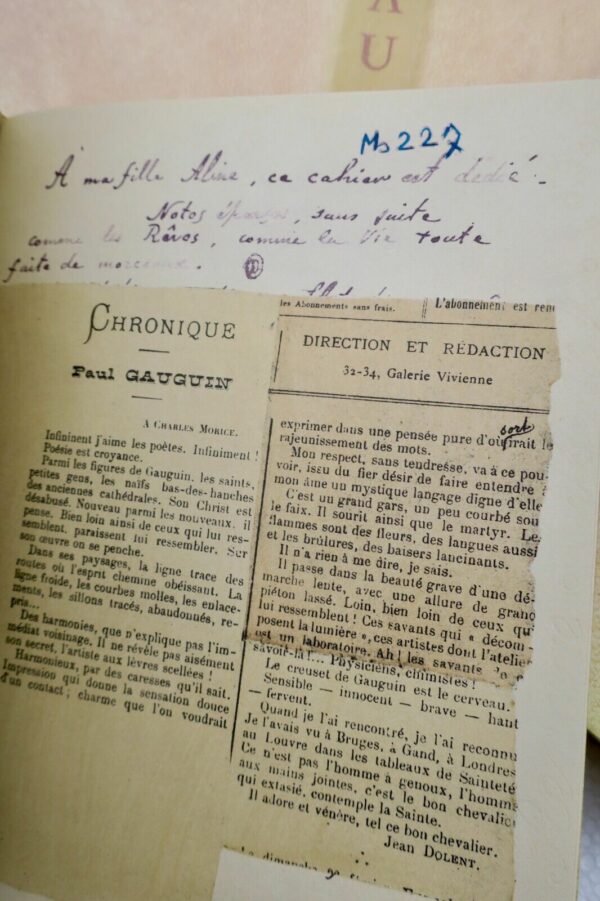 A
U
Ms 227
À ma fille Aline, ce cahier est dédié.
Notes éparses, sans suite
comme les Rêves, comme la vie toute
faite de morceaux.
CHRONIQUE
Paul GAUGUIN
A CHARLES MORICE.
Infiniment j'aime les poètes. Infiniment !
Poésie est croyance.
Parmi les figures de Gauguin, les saints,
petites gens, les naïfs bas-des-hanches
des anciennes cathédrales. Son Christ est
désabusé. Nouveau parmi les nouveaux, il
pense. Bien loin ainsi de ceux qui lui res-
semblent, paraissent lui ressembler. Sur
son œuvre on se penche.
Dans ses paysages, la ligne trace des
routes où l'esprit chemine obéissant. La
ligne froide, les courbes molles, les enlace-
ments, les sillons tracés, abandonnés, re-
pris...
Des harmonies, que n'explique pas l'im-
médiat voisinage. Il ne révèle pas aisément
son secret, l'artiste aux lèvres scellées !
Harmonieux, par des caresses qu'il sait.
Impression qui donne la sensation douce
d'un contact ; charme que l'on voudrait
les Abonnements sans frais.
L'abonnement est ren
DIRECTION ET RÉDACTION
32-34, Galerie Vivienne
sort
exprimer dans une pensée pure d'où irait le
rajeunissement des mots.
Mon respect, sans tendresse, va à ce pou-
voir, issu du fier désir de faire entendre à
mon âme un mystique langage digne d'elle
C'est un grand gars, un peu courbé sou
le faix. Il sourit ainsi que le martyr. Le
flammes sont des fleurs, des langues aussi
et les brûlures, des baisers lancinants.
Il n'a rien à me dire, je sais.
Il passe dans la beauté grave d'une dé-
marche lente, avec une allure de grand
piéton lassé. Loin, bien loin de ceux qui
lui ressemblent ! Ces savants qui « décom-
posent la lumière », ces artistes dont l'atelier
est un laboratoire. Ah ! les savants
savoie-là !... Physiciens, chimistes !
Le creuset de Gauguin est le cerveau.
Sensible — innocent — brave — haut
— fervent.
Quand je l'ai rencontré, je l'ai reconnu
Je l'avais vu à Bruges, à Gand, à Londres
au Louvre dans les tableaux de Sainteté
Ce n'est pas l'homme à genoux, l'homme
aux mains jointes, c'est le bon chevalier
qui extasié, contemple la Sainte.
Il adore et vénère, tel ce bon chevalier.
Jean DOLENT.